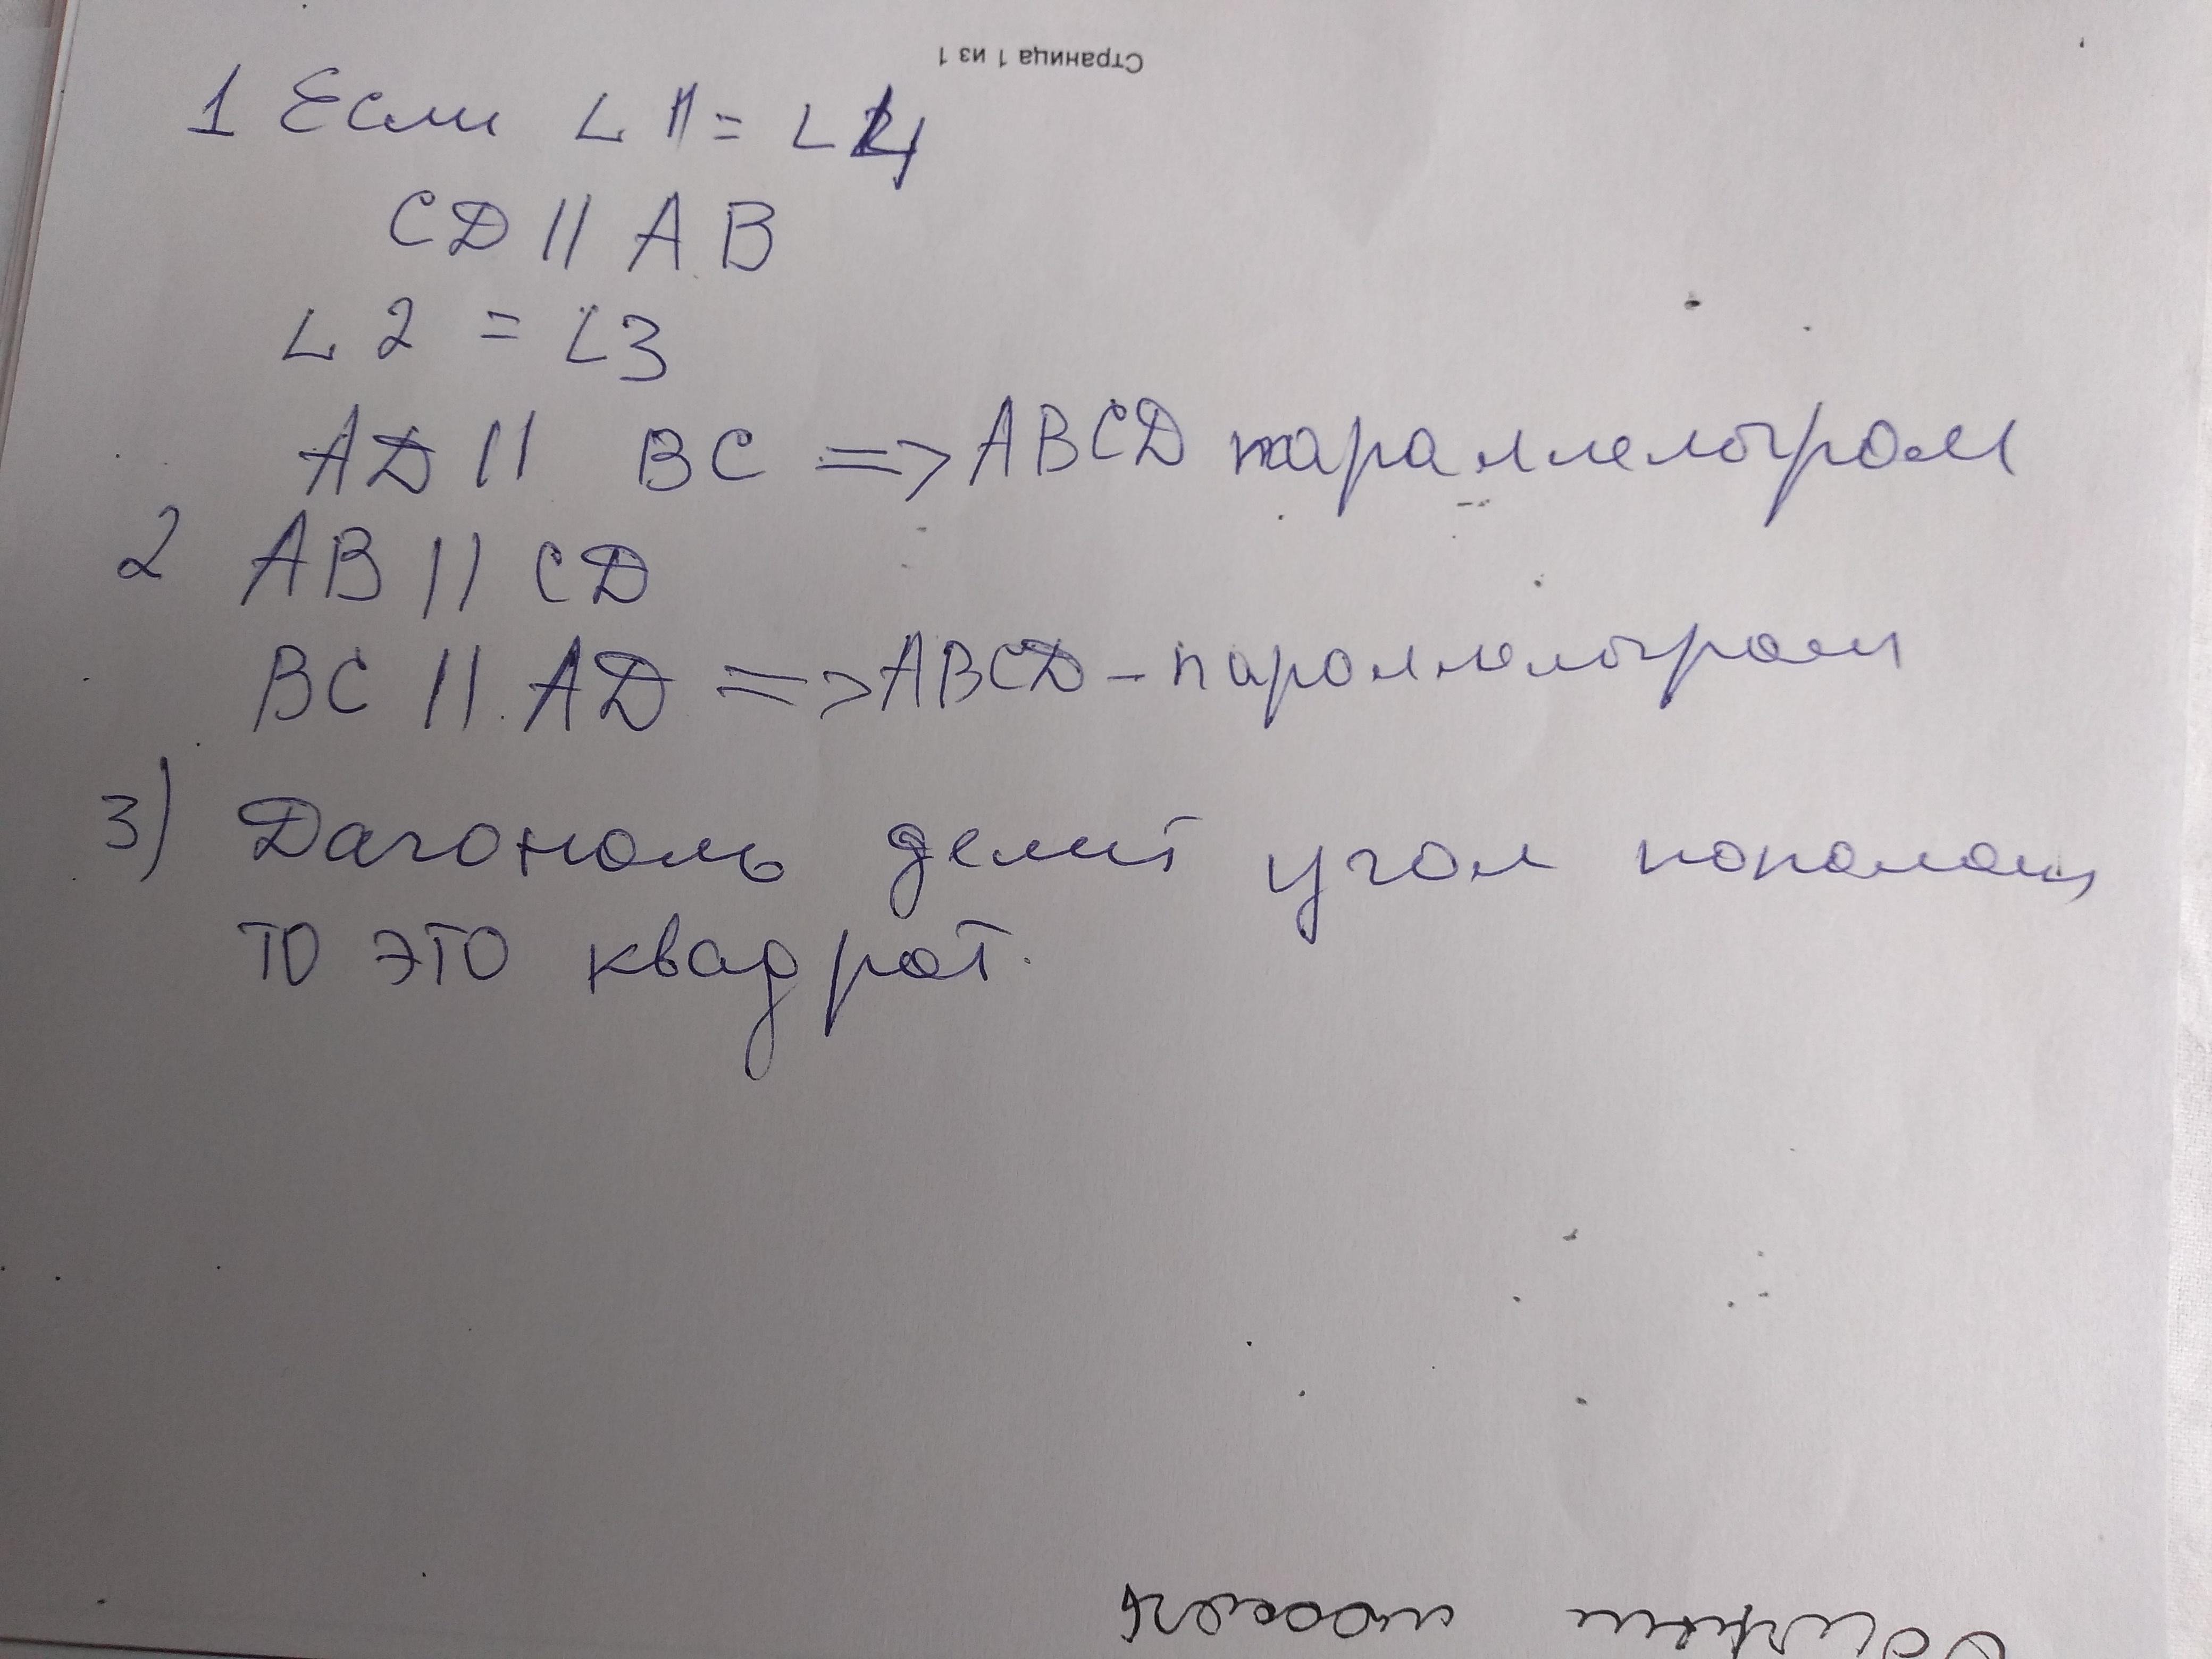 Страница 1 из 1
1 Если ∠1 = ∠4
CD || AB
∠2 = ∠3
AD || BC => ABCD параллелограм
2 AB || CD
BC || AD => ABCD - параллелограм
3) Дагональ делит угол пополам
то это квадрат.